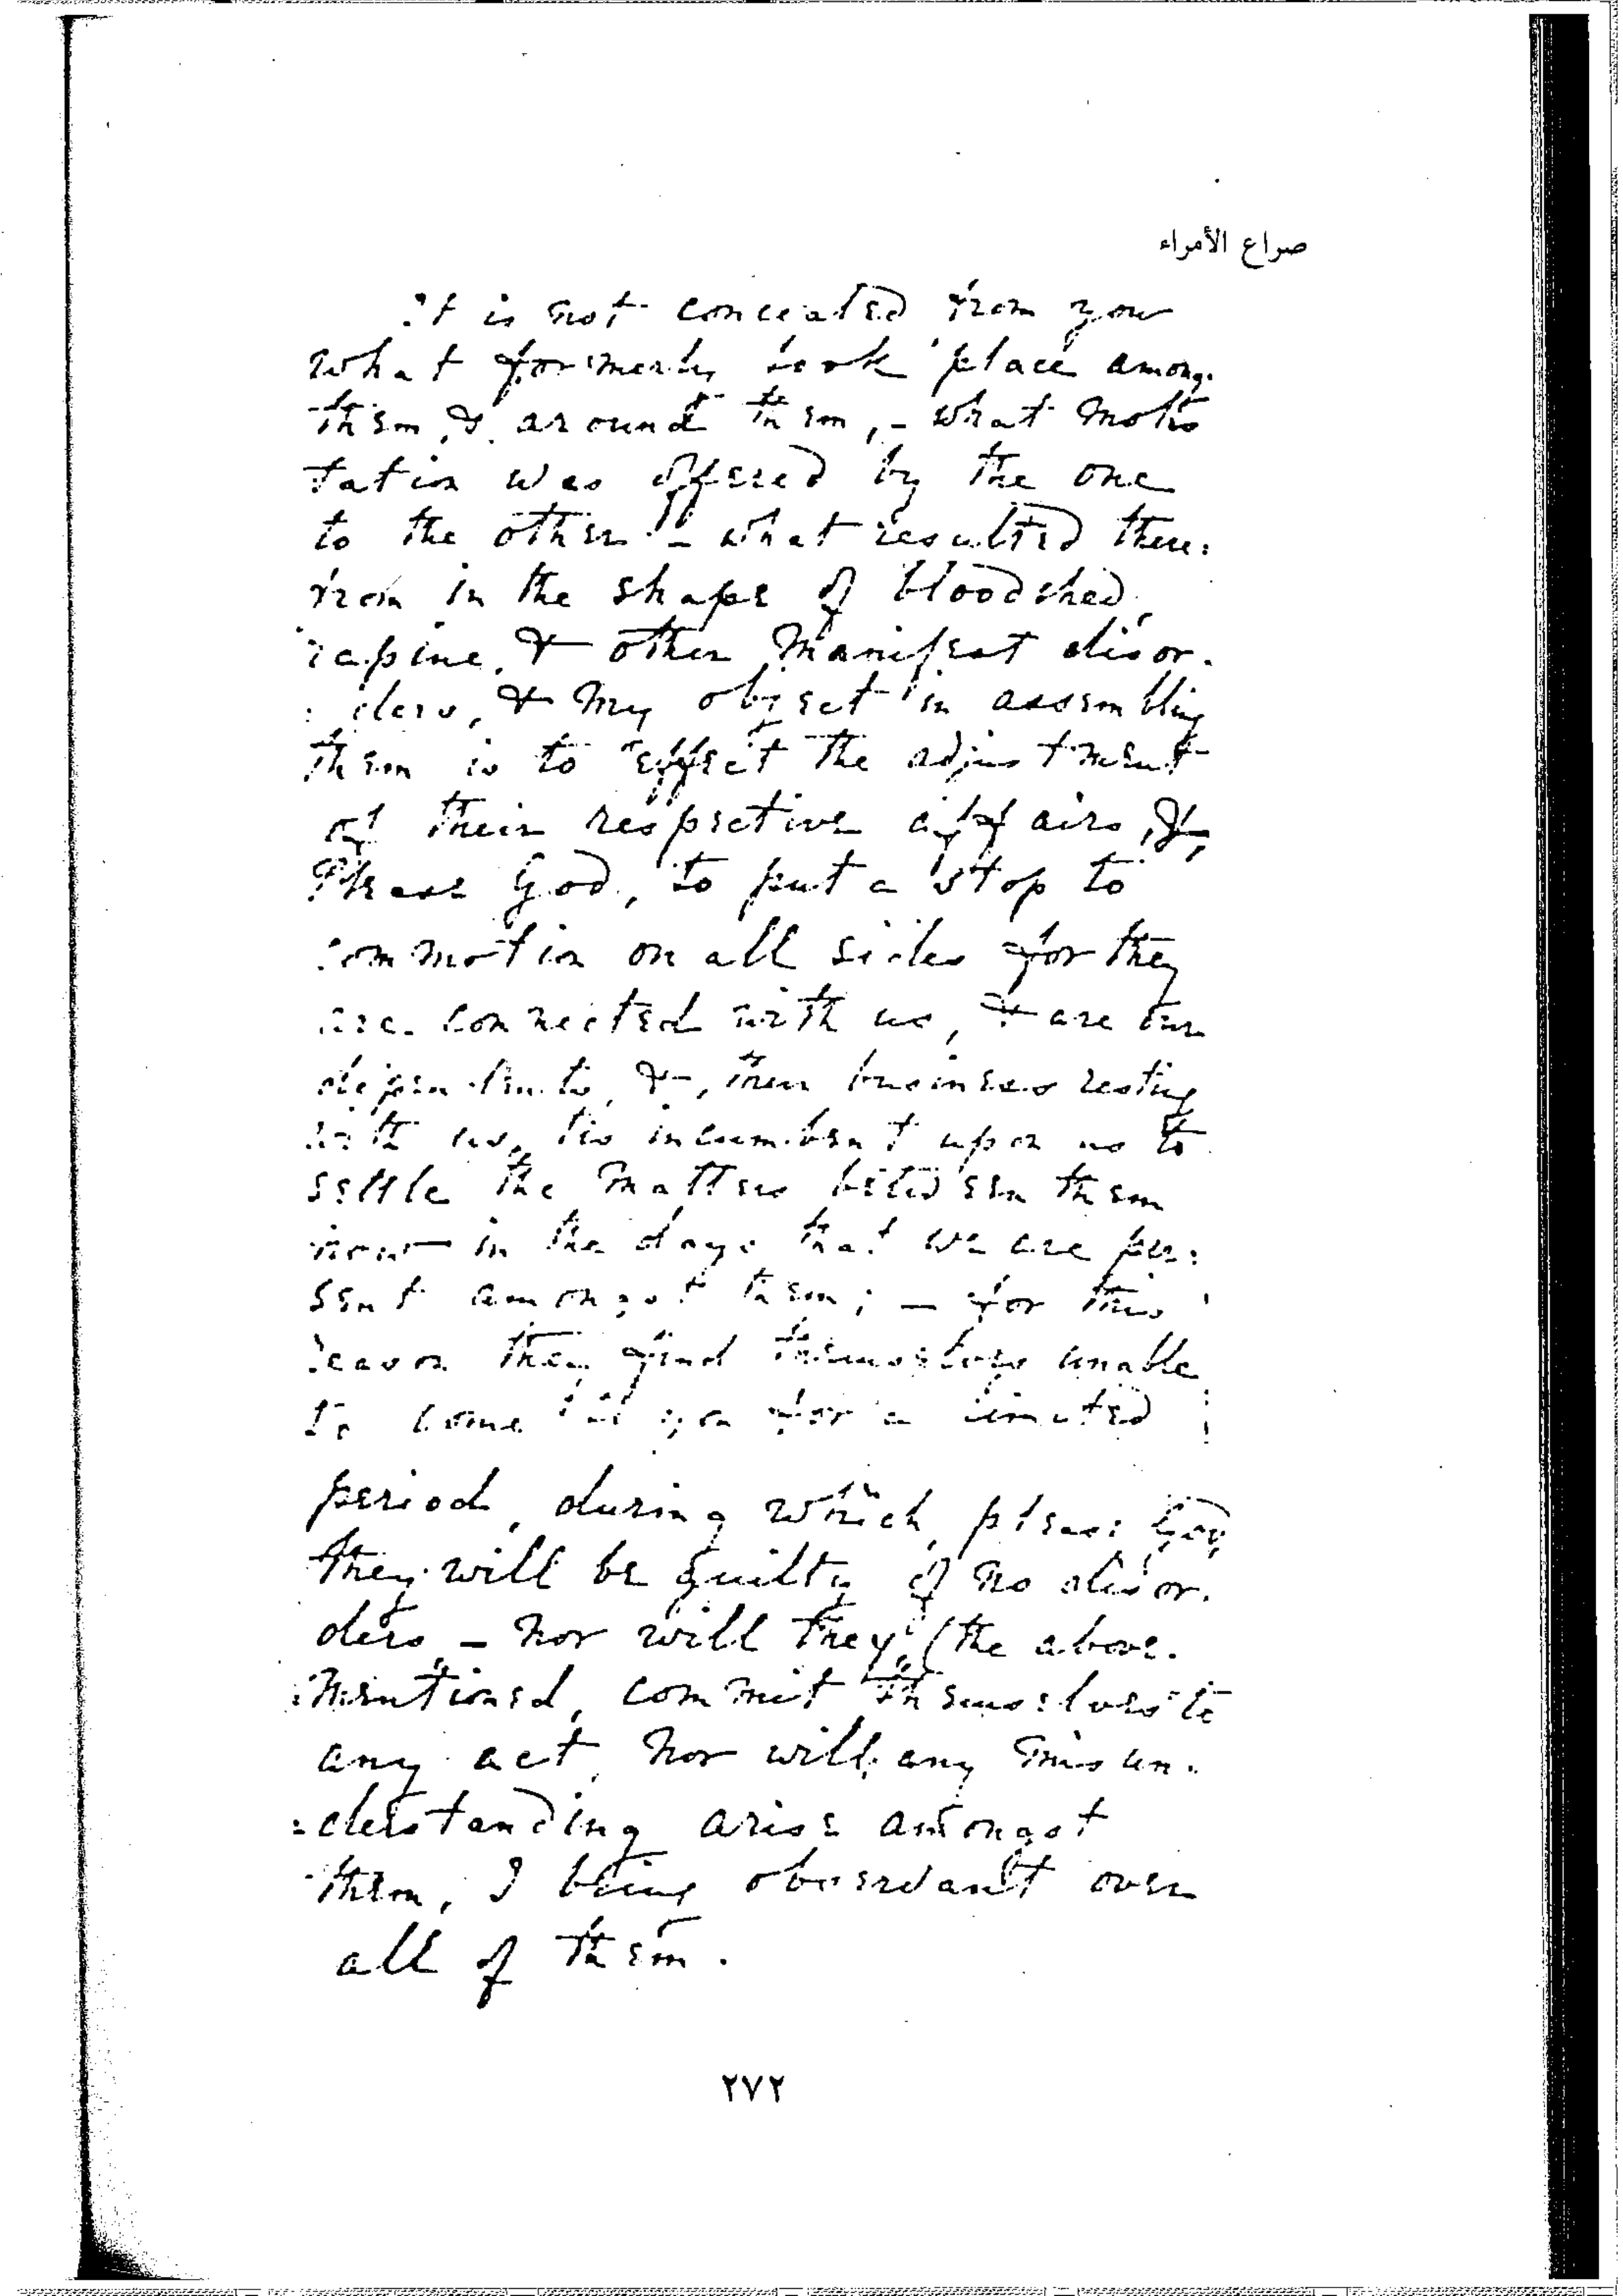 صراع الأمراء
it is not concealed from you
what formerly took place among
them, & around them, - what moles
tation was offered by the one
to the other - what resulted there:
from in the shape of bloodshed,
rapine, & other manifest disor.
:ders, & my object in assembling
them is to effect the adjustment
of their respective affairs, &,
Please God, to put a stop to
commotion on all sides for they
are connected with us, & are our
dependents, &, their business resting
with us, tis incumbent upon us to
settle the matters between them
now in the days that we are pre:
sent amongst them; - for this
reason they find themselves unable
to come to you for a limited
period, during which, please God,
they will be guilty of no disor.
ders - nor will they (the above.
:mentioned, commit themselves to
any act, nor will any misun.
:derstanding arise amongst
them, I being observant over
all of them.
٢٧٢